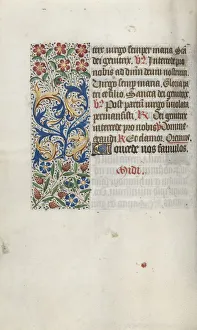 virgo semper maria
genitrix. V. Intercede pro
nobis ad dominum deum nostrum
Virgo semp maria. Gloria pa
tri et filio. Sancta dei genitrix.
V. Post partum virgo inviolata
permansisti. R. Dei genitrix
intercede pro nobis. Domine
exaudi R. Et clamor. Oremus.
Concede nos famulos.